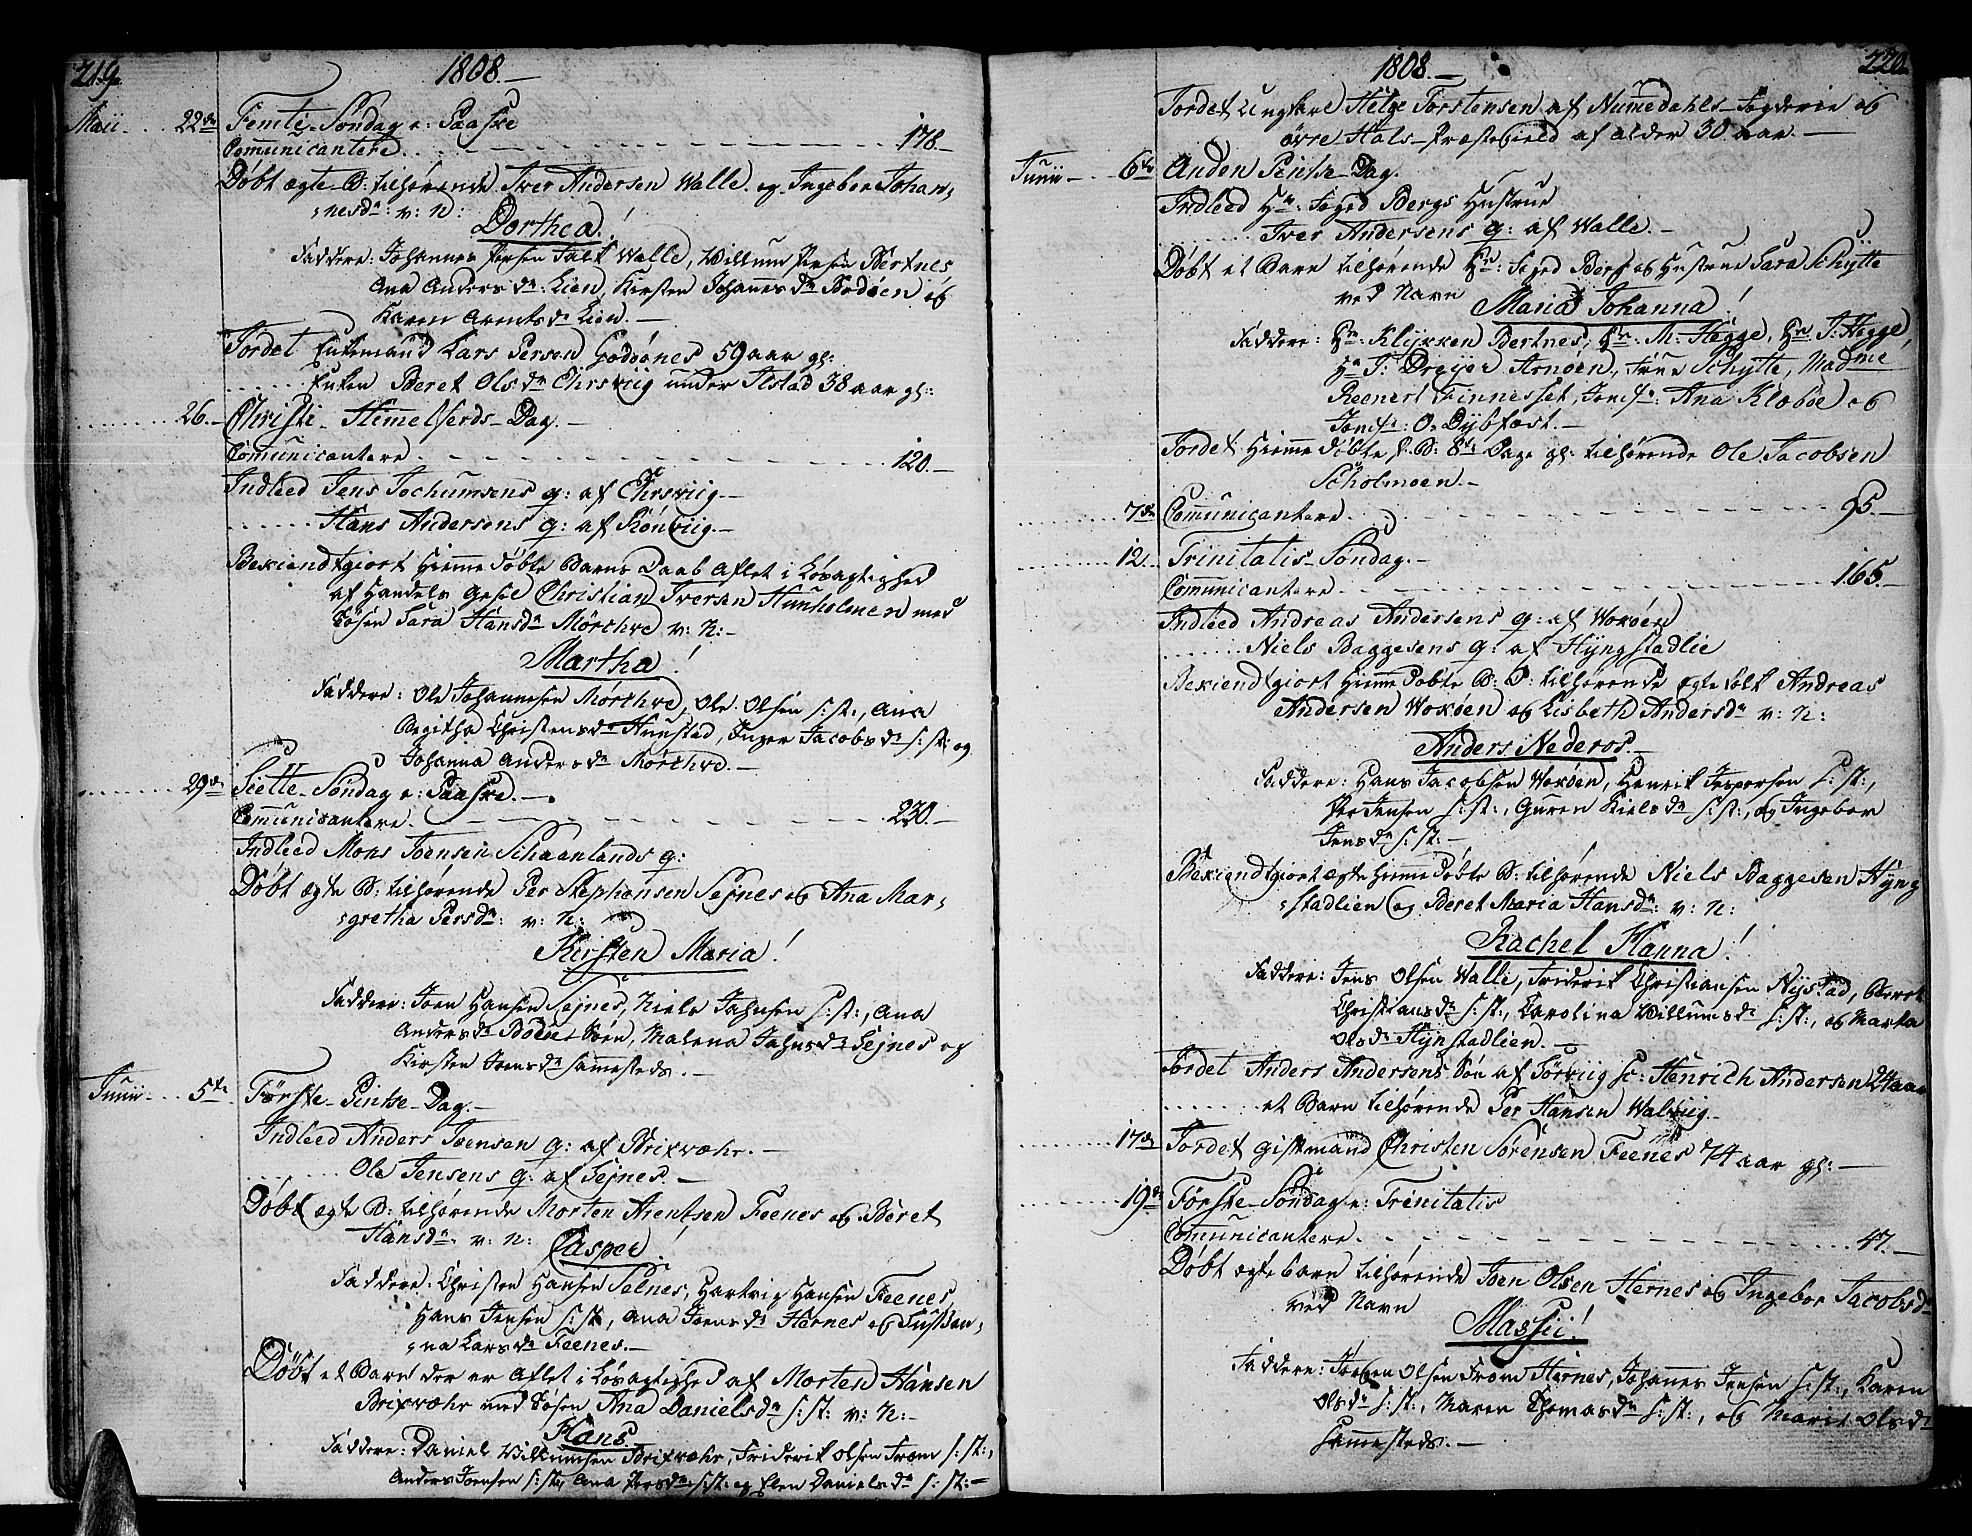 219.
1808.
Maii 22de Femte Søndag e: Paaske
Comunicantere 178.
Døbt ægte B: tilhørende Iver Andersen Walle og Ingebor Johan,
,nesdr: v: N:
Dorthea!
Faddere: Johannes Persen Walle, Willum Persen Bertnes,
Ana Andersdr Lien, Kirsten Johannesdr Bodøen og
Karen Arentsdr Lien.
Jordet Enkemand Lars Persen Godøønes 59 aar gl:
Enken Beret Olsdr Ehrsviig under Ilstad 38 aar gl:
26. Christi Himmelferds Dag.
Comunicantere 120.
Indleed Jens Jochumsens q: af Ehrsviig.
Hans Andersens q: af Kønviig.
Bekiendtgiort Hiemme Døbte Barns Daab aflet i Løsagtighed
af Handels Christian Iversen Hunholmen med
Tøsen Sara Hansdr Mørchve v: N:
Martha!
Faddere: Ole Johannesen Mørchve, Ole Olsen s: st:, Ana
Birgitha Christensdr Hunstad, Inger Jacobsdr s: st: og
Johanna Andersdr Mørchve.
29de Siette Søndag e: Paaske.
Comunicantere 230.
Indleed Mons Joensen Schaanlands q:
Døbt ægte B: tilhørende Per Stephensen Sejnes og Ana Mar,
,gretha Persdr: v: N:
Kirsten Maria!
Faddere: Joen Hansen Sejnes, Niels Jahnsen s: st:, Ana
Andersdr Malena Jahnsdr Sejnes og
Kirsten Jensdr sammesteds.
Junii 5te Første Pintse Dag.
Indleed Anders Joensen q: af Brixvæhr.
Ole Jensens q: af Sejnes.
Døbt ægte B: tilhørende Morten Arentsen Feenes og Beret
Hansdr v: N: Casper!
Faddere: Christen Hansen Selnes, Hartvig Hansen Feenes
Hans Jensen s: st:, Ana Joensdr Hernes og Susan,
,na Larsdr Feenes.
Døbt et Barn der er aflet i Løsagtighed af Morten Hansen
Brixvæhr med Tøsen Ana Danielsdr s: st: v: N:
Hans.
Faddere: Daniel Willumsen Brixvæhr, Friderik Olsen From s: st:,
Anders Joensen s: st:, Ana Persdr s: st: og Elen Danielsdr s: st:
1808.
220.
Jordet Ungkarl Helge Torstensen af Numedahls Fogderie og
øvre Hals Præstegield af alder 30 aar.
Junii 6te Anden Pintse Dag.
Indleed Hr: Foged Bergs Hustrue
Iver Andersens q: af Walle.
Døbt et Barn tilhørende Hr: Foged Berg og Hustrue Sara Schytte
ved Navn Maria Johanna!
Faddere: Hr: Klykken Bertnes, Hr: M: Hegge, Hr J: Hegge,
Hr J: Dreyer Arnøen, Frue Schytte, Madme
Reenert Finneset, Jomf: Ana Klæboe og
Jomf: O: Dybfæst.
Jordet Hiemme Døbte B: 8te Dage gl: tilhørende Ole Jacobsen
Scholmoen.
7de Comunicantere 95.
12. Trinitatis Søndag.
Comunicantere 165.
Indleed Andreas Andersens q: af Woxøen
Niels Baggesens q: af Hyngstadlie
Bekiendtgiort Hiemme Døbte B: D: tilhørende Egte folk Andreas
Andersen Woxøen og Lisbeth Andersdr v: N:
Anders Nederos.
Faddere: Hans Jacobsen Woxøen, Henrik Jespersen s: st:,
Per Jensen s: st:, Guren Nielsdr s: st:, og Ingebor
Jensdr s: st:
Bekiendtgiort ægte Hiemme Døbte B: tilhørende Niels Baggesen Hyng
,stadlien og Beret Maria Hansdr: v: N:
Rachel Hanna!
Faddere: Jens Olsen Walle, Friderik Christiansen Nystad, Beret
Christiansdr s: st:, Carolina Willumsdr s: st:, og Marta
Olsdr Hynstadlien.
Jordet Anders Andersens Søn af Tørviig sc: Henrich Andersen 24 aar
et Barn tilhørende Per Hansen Walviig.
17de Jordet giftmand Christen Sørensen Feenes 74 aar gl:
19de Første Søndag e: Trinitatis
Comunicantere 47.
Døbt ægte barn tilhørende Joen Olsen Hernes og Ingebor Jacobsdr
ved Navn
Massii!
Faddere: Olsen From Hernes, Johannes Jensen s: st:, Karen
Olsdr s: st:, Maren Thomasdr s: st:, og Marit Olsdr
sammesteds.